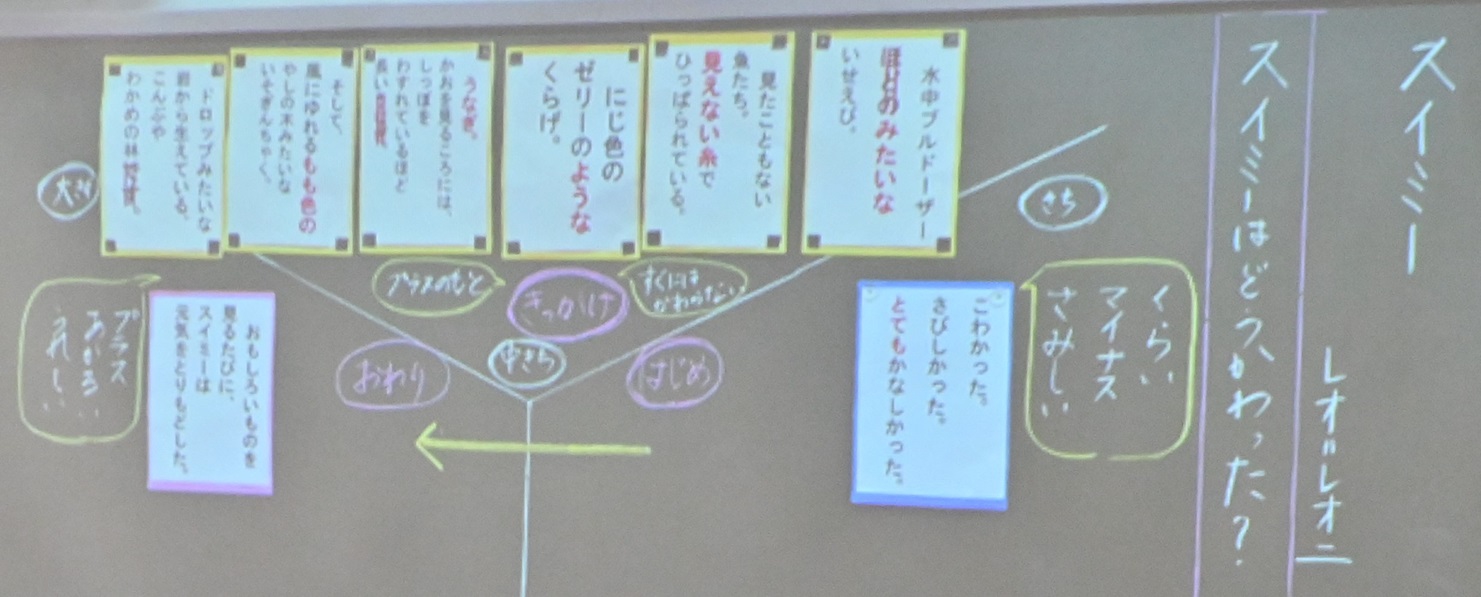 スイミー
レオ＝レオニ
スイミーはどう、かわった？
くらい
マイナス
さみしい
水中ブルドーザー
ほどのみたいな
いせえび。
こわかった。
さびしかった。
とてもかなしかった。
見たこともない
魚たち。
見えない糸で
ひっぱられている。
すぐには
かわらない
はじめ
にじ色の
ゼリーのような
くらげ。
きっかけ
中きち
うなぎ。
かおを見るころには、
しっぽを
わすれているほど
長い
プラスのもと
おわり
そして、
風にゆれるもも色の
やしの木みたいな
いそぎんちゃく。
ドロップみたいな
岩から生えている、
こんぶや
わかめの林
おもしろいものを
見るたびに、
スイミーは
元気をとりもどした。
プラス
あかるい
うれしい